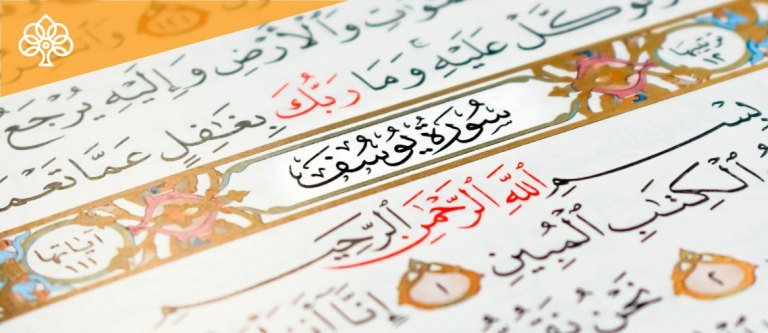 وَٱلْأَرْضِ وَإِلَيْهِ يُرْجَعُ
وَتَوَكَّلْ عَلَيْهِ وَمَا رَبُّكَ بِغَٰفِلٍ عَمَّا
سُورَةُ يُوسُفَ
آيَاتُهَا ١١١
بِسْمِ ٱللَّهِ ٱلرَّحْمَٰنِ ٱلرَّحِيمِ
ٱلْكِتَٰبِ ٱلْمُبِينِ ١ إِنَّآ
٢ نَحْنُ